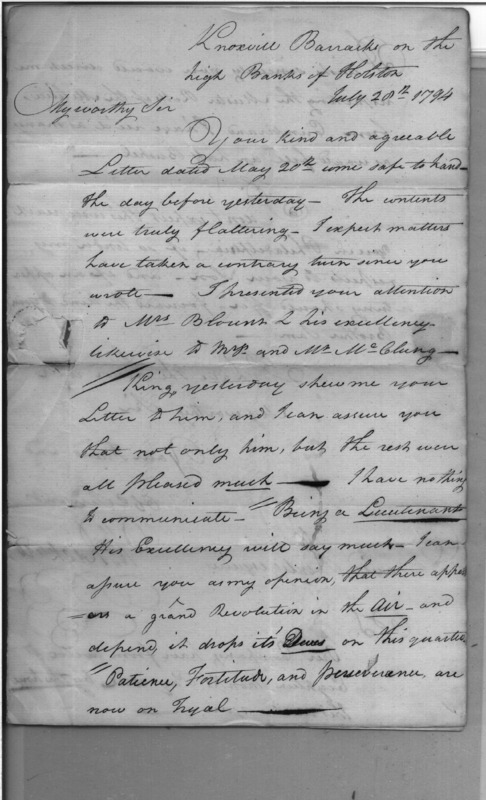 Knoxvill Barracks on the
high Banks of Holston
July 28th 1794
My worthy Sir
Your kind and agreeable
Letter dated May 20th come safe to hand—
the day before yesterday — The contents
were truly flattering — I expect matters
have taken a contrary turn since you
wrote — I presented your attention
to Mrs Blount & his excellency
likewise to Mrs. and Mr. McClung —
King, yesterday shew me your
Letter to him, and I can assure you
that not only him, but the rest were
all pleased much — I have nothing
to communicate — "Being a Lieutenant
His Excellency will say much — I can
assure you as my openion, that there appe
=ars a grand Revolution in the Air — and
depend, it drops its' Dews on this quarter
"Patience, Fortitude, and perseverance, are
now on Tryal —